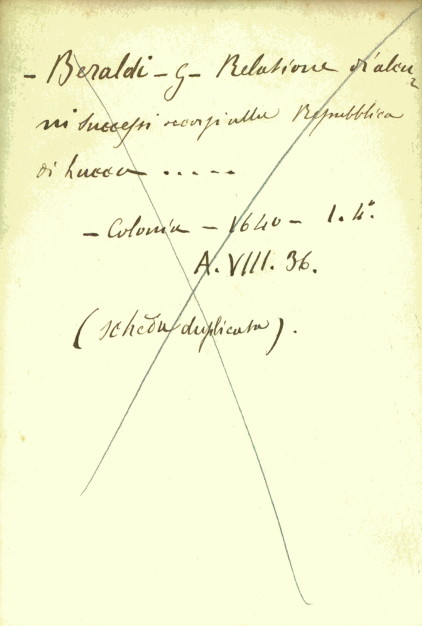 - Beraldi - G - Relatione d'alcu-
ni successi occorsi alla Repubblica
di Lucca .....
- Colonia - 1640 - 1. 4º.
A. VIII. 36.
(scheda duplicata).